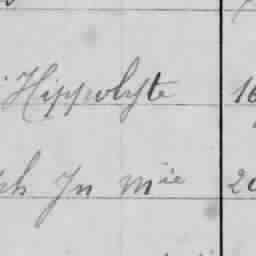 Hippolyte 16
ph Jn Mie 20